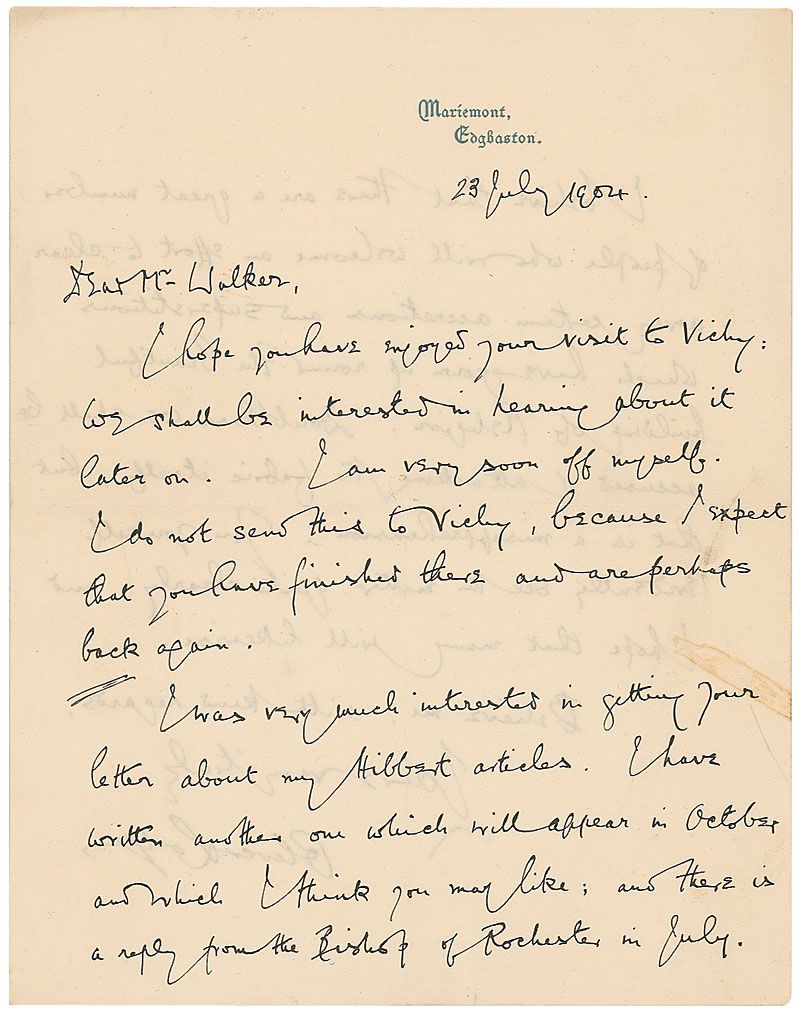 Mariemont,
Edgbaston.
23 July 1904.
Dear Mr Walker,
I hope you have enjoyed your visit to Vichy:
we shall be interested in hearing about it
later on. I am very soon off myself.
I do not send this to Vichy, because I expect
that you have finished there and are perhaps
back again.
I was very much interested in getting your
letter about my Hibbert articles. I have
written another one which will appear in October
and which I think you may like; and there is
a reply from the Bishop of Rochester in July.